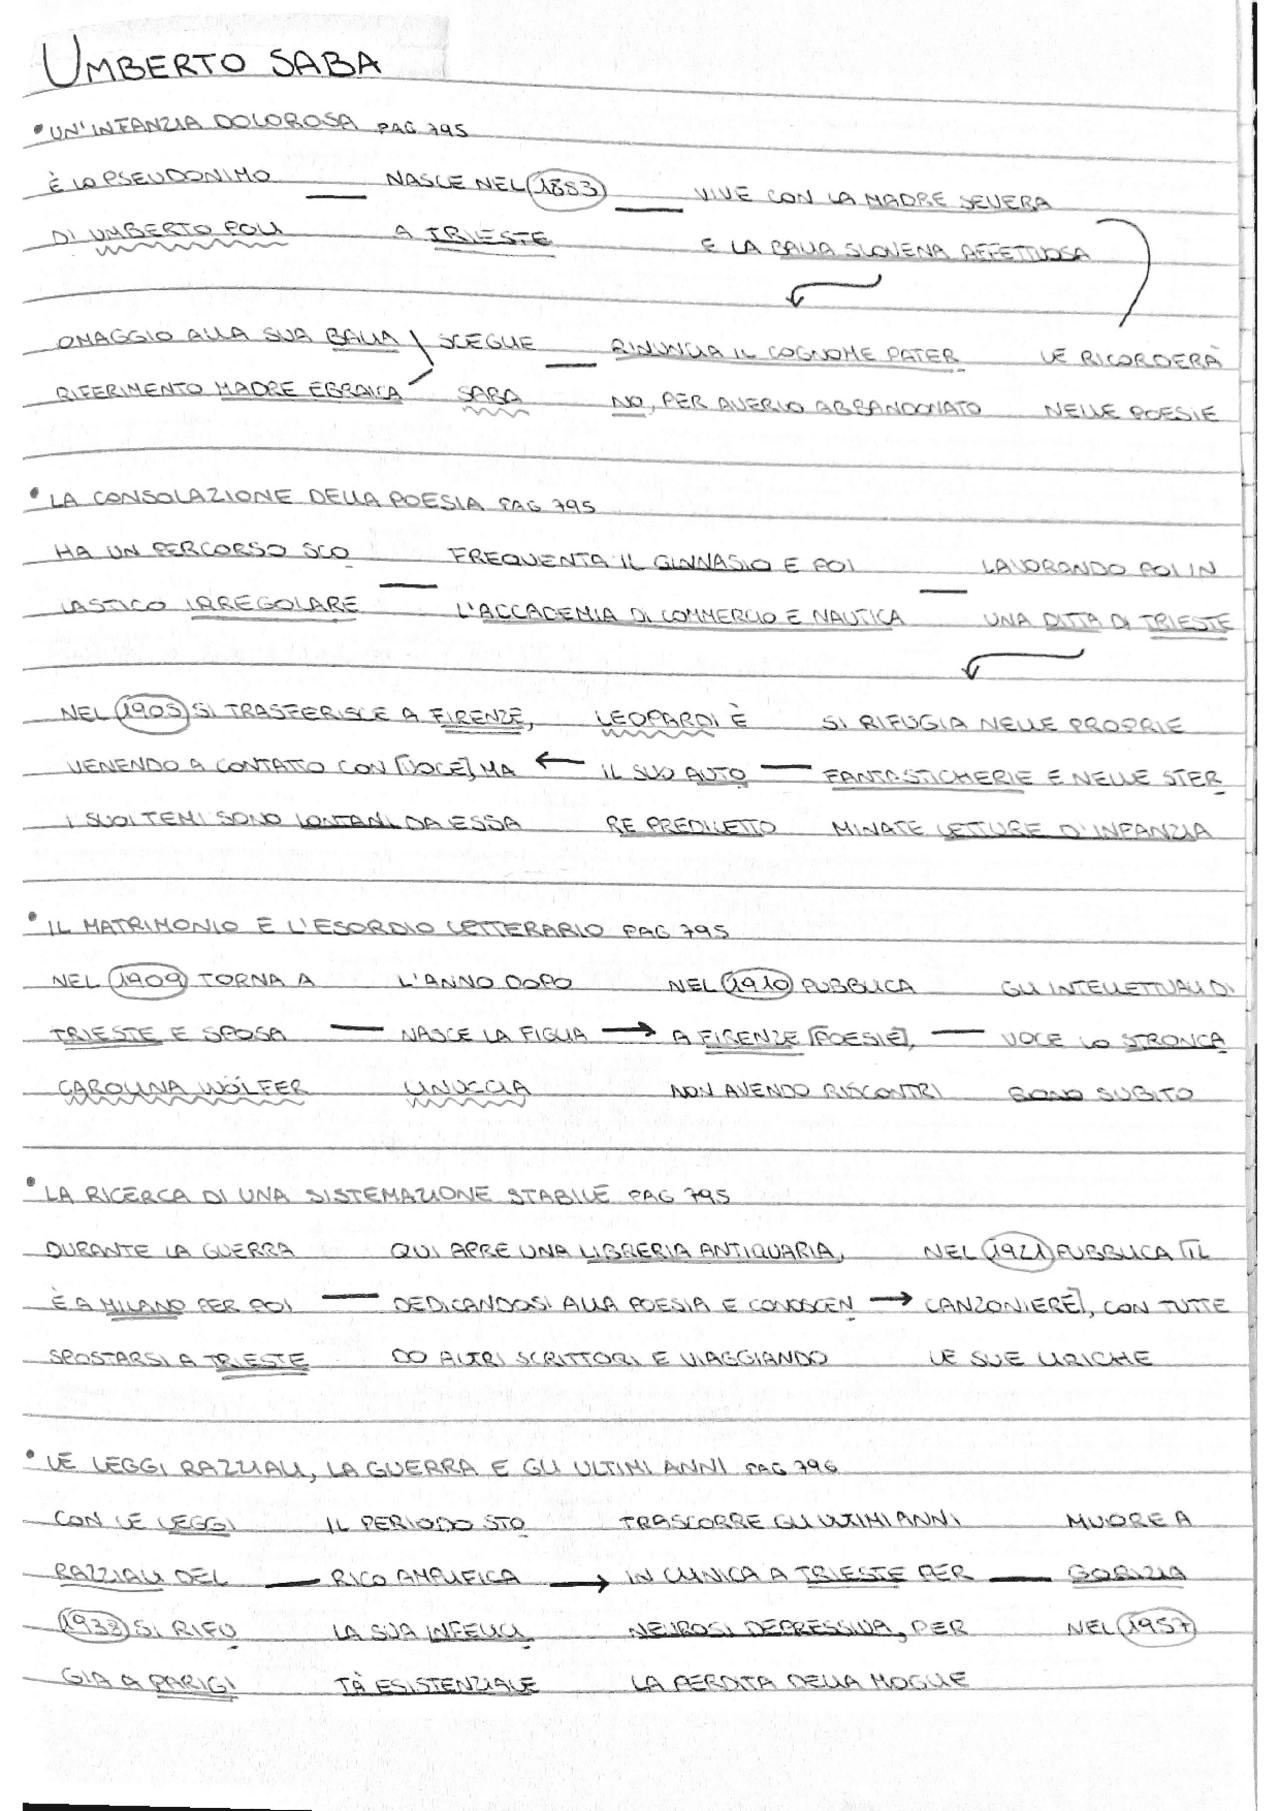 UMBERTO SABA
• UN'INFANZIA DOLOROSA PAG 795
È LO PSEUDONIMO — NASCE NEL 1883 — VIVE CON LA MADRE SEVERA
DI UMBERTO POLI A TRIESTE E LA BALIA SLOVENA AFFETTUOSA
OMAGGIO ALLA SUA BALIA SCEGLIE — RINUNCIA IL COGNOME PATER LE RICORDERÀ
RIFERIMENTO MADRE EBRAICA SABA NO, PER AVERLO ABBANDONATO NELLE POESIE
• LA CONSOLAZIONE DELLA POESIA PAG 795
HA UN PERCORSO SCO FREQUENTA IL GINNASIO E POI LAVORANDO POI IN
LASTICO IRREGOLARE — L'ACCADEMIA DI COMMERCIO E NAUTICA — UNA DITTA DI TRIESTE
NEL 1905 SI TRASFERISCE A FIRENZE, LEOPARDI È SI RIFUGIA NELLE PROPRIE
VENENDO A CONTATTO CON [VOCE] MA ← IL SUO AUTO — FANTASTICHERIE E NELLE STER
I SUOI TEMI SONO LONTANI DA ESSA RE PREDILETTO MINATE LETTURE D'INFANZIA
• IL MATRIMONIO E L'ESORDIO LETTERARIO PAG 795
NEL 1909 TORNA A L'ANNO DOPO NEL 1910 PUBBLICA GLI INTELLETTUALI DI
TRIESTE E SPOSA — NASCE LA FIGLIA → A FIRENZE [POESIE], — VOCE LO STRONCA
CAROLINA WÖLFER LINUCCIA NON AVENDO RISCONTRI RONO SUBITO
• LA RICERCA DI UNA SISTEMAZIONE STABILE PAG 795
DURANTE LA GUERRA QUI APRE UNA LIBRERIA ANTIQUARIA, NEL 1921 PUBBLICA [IL
È A MILANO PER POI — DEDICANDOSI ALLA POESIA E CONOSCEN → CANZONIERE], CON TUTTE
SPOSTARSI A TRIESTE DO ALTRI SCRITTORI E VIAGGIANDO LE SUE LIRICHE
• LE LEGGI RAZZIALI, LA GUERRA E GLI ULTIMI ANNI PAG 796
CON LE LEGGI IL PERIODO STO TRASCORRE GLI ULTIMI ANNI MUORE A
RAZZIALI DEL — RICO AMPLIFICA → IN CLINICA A TRIESTE PER — GORIZIA
1938 SI RIFU LA SUA INFELICI NEUROSI DEPRESSIVA, PER NEL 1957
GIA A PARIGI TÀ ESISTENZIALE LA PERDITA DELLA MOGLIE